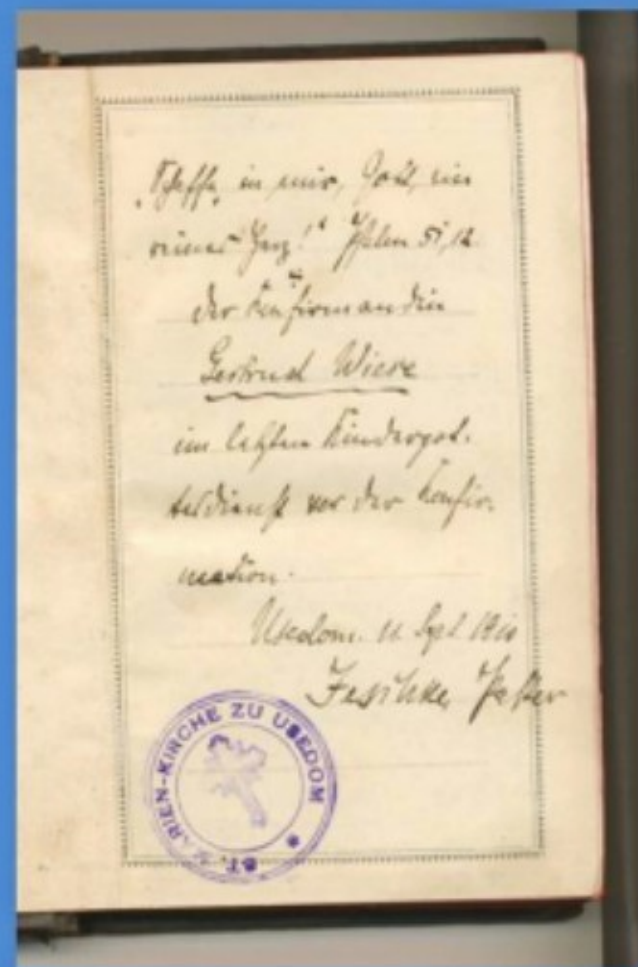 „Schaffe in mir, Gott, ein
reines Herz!“ Psalm 51,12.
Der Konfirmandin
Gertrud Wiere
im letzten Kindergot-
tesdienst vor der Konfir-
mation.
Usedom. 11 Sept
Jeschke, Pastor
ST. MARIEN-KIRCHE ZU USEDOM